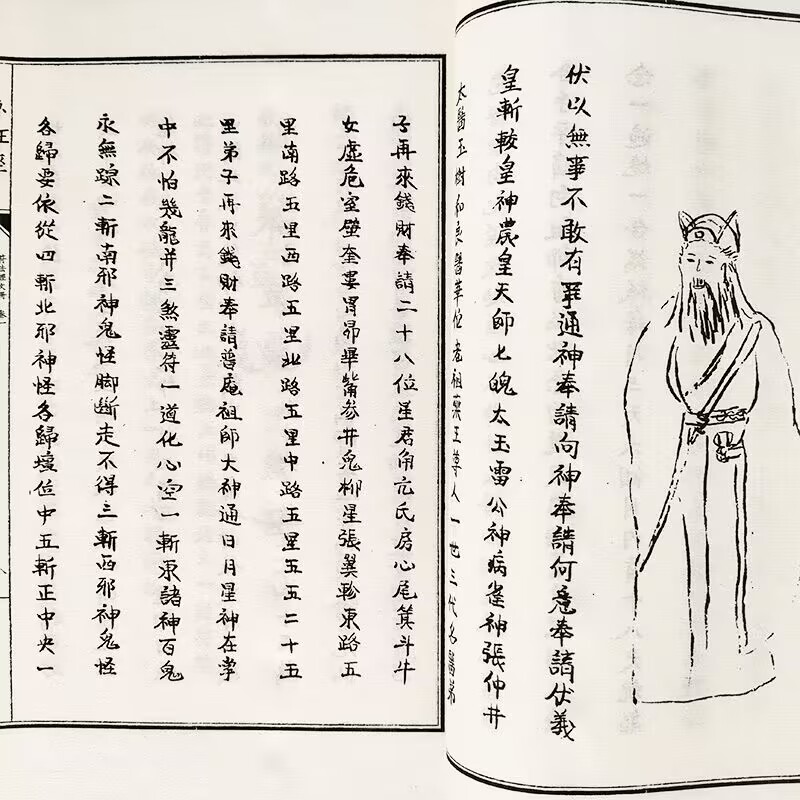 伏以無事不敢有事通神奉請向神奉請何意奉請伏羲
皇斬較皇神農皇天師七魄太玉雷公神病雀神張仲井
太醫玉樹和良醫華位老祖藥王尊人一世三代名醫弟
子再來錢財奉請二十八位星君角亢氐房心尾箕斗牛
女虛危室壁奎婁胃昴畢觜參井鬼柳星張翼軫東路五
里南路五里西路五里北路五里中路五星五五二十五
里弟子再來錢財奉請普庵祖師大神通日月星神在掌
中不怕幾龍并三煞靈符一道化心空一斬東諸神百鬼
永無踪二斬南邪神鬼怪脚斷走不得三斬西邪神鬼怪
各歸要依從四斬北邪神怪各歸壇位中五斬正中央一